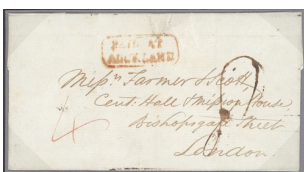 PAID AT
AUCKLAND
Mess.rs Farmer & Scott,
Cent: Hall & Mission House,
Bishopsgate Street
London.
4